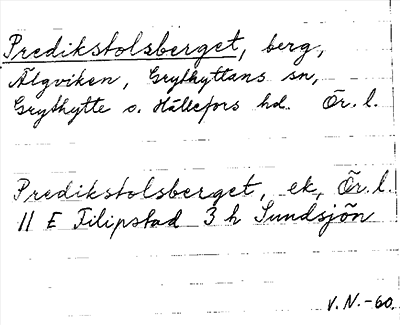 Predikstolsberget, berg,
Älgviken, Grythyttans sn,
Grythytte o. Hällefors hd. Ör. l.
Predikstolsberget, ek, Ör. l.
11 E Filipstad 3 h Sundsjön
V. N. -60.